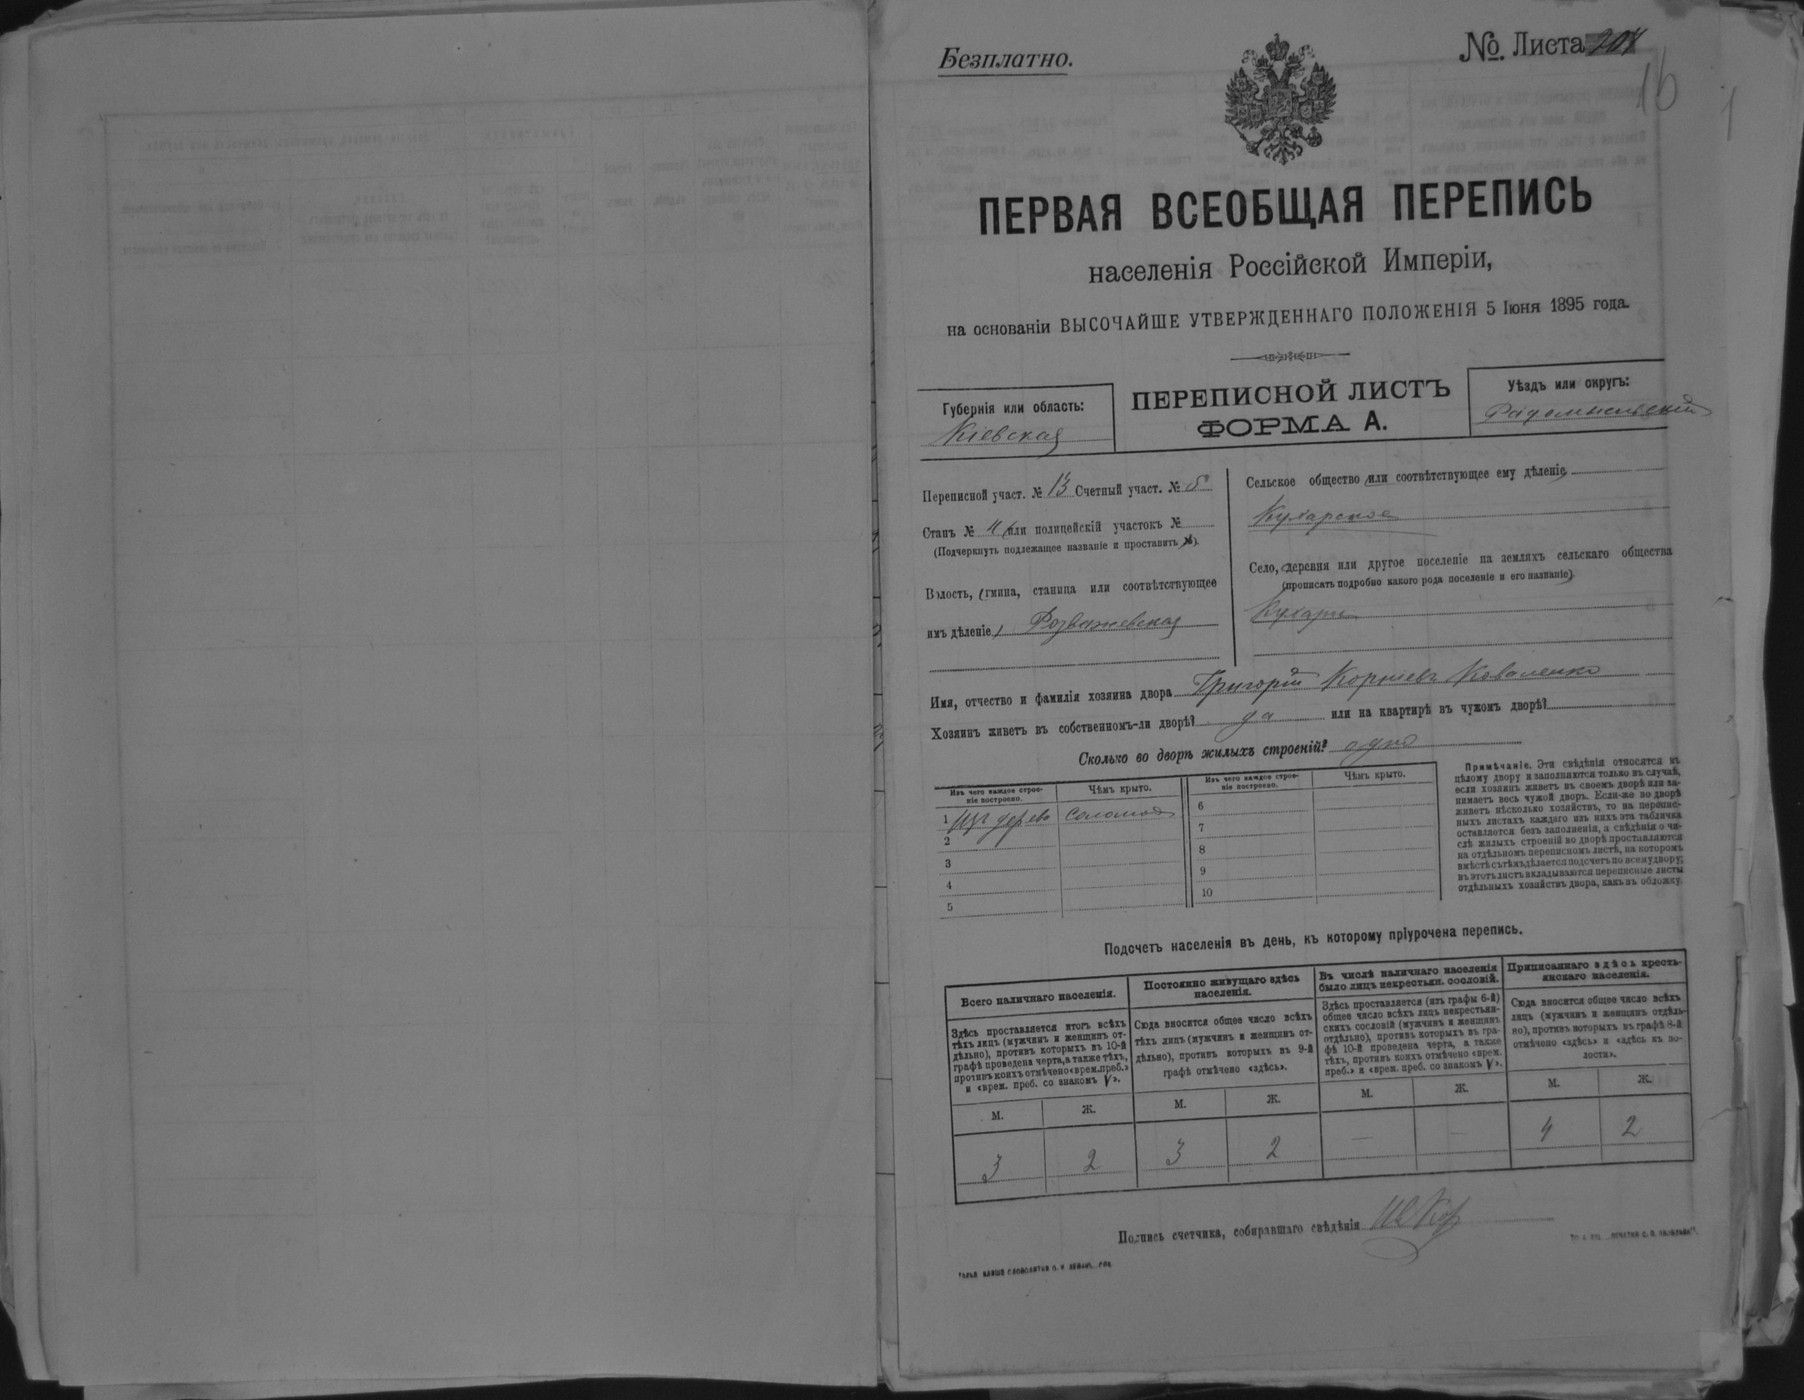 Безплатно.
№ Листа 204
16
ПЕРВАЯ ВСЕОБЩАЯ ПЕРЕПИСЬ
населенія Россійской Имперіи,
на основаніи ВЫСОЧАЙШЕ УТВЕРЖДЕННАГО ПОЛОЖЕНІЯ 5 Іюня 1895 года.
Губернія или область:
Кіевская
ПЕРЕПИСНОЙ ЛИСТЪ
ФОРМА А.
Уѣздъ или округъ:
Радомысльскій
Переписной участ. № 13 Счетный участ. № 5
Станъ № 4 или полицейскій участокъ №
(Подчеркнуть подлежащее названіе и проставить №).
Волость, (гмина, станица или соотвѣтствующее
имъ дѣленіе) Розважевская
Сельское общество (или соотвѣтствующее ему дѣленіе)
Кухарское
Село, (деревня или другое поселеніе на земляхъ сельскаго общества
(прописать подробно какого рода поселеніе и его названіе)
Кухари
Имя, отчество и фамилія хозяина двора Григорій Корніевъ Коваленко
Хозяинъ живетъ въ собственномъ-ли дворѣ? да или на квартирѣ въ чужомъ дворѣ?
Сколько во дворѣ жилыхъ строеній? одно
Изъ чего каждое строе-
ніе построено.
Чѣмъ крыто.
Изъ чего каждое строе-
ніе построено.
Чѣмъ крыто.
1 изъ дерева соломою
2
3
4
5
6
7
8
9
10
Примѣчаніе. Эти свѣдѣнія относятся къ
цѣлому двору и заполняются только въ случаѣ,
если хозяинъ живетъ въ своемъ дворѣ или за-
нимаетъ весь чужой дворъ. Если-же во дворѣ
живетъ нѣсколько хозяйствъ, то на перепис-
ныхъ листахъ каждаго изъ нихъ эта табличка
оставляется безъ заполненія, а свѣдѣнія о чи-
слѣ жилыхъ строеній во дворѣ проставляются
на отдѣльномъ переписномъ листѣ, на которомъ
вмѣстѣ съ тѣмъ дѣлается подсчетъ по всему двору;
въ этотъ листъ вкладываются переписные листы
отдѣльныхъ хозяйствъ двора, какъ въ обложку.
Подсчетъ населенія въ день, къ которому пріурочена перепись.
Всего наличнаго населенія.
Здѣсь проставляется итогъ всѣхъ
тѣхъ лицъ (мужчинъ и женщинъ от-
дѣльно), противъ которыхъ въ 10-й
графѣ проведена черта, а также тѣхъ,
противъ коихъ отмѣчено «врем. преб.»
и «врем. преб. со знакомъ V».
М. Ж.
3 2
Постоянно живущаго здѣсь
населенія.
Сюда вносится общее число всѣхъ
тѣхъ лицъ (мужчинъ и женщинъ от-
дѣльно), противъ которыхъ въ 9-й
графѣ отмѣчено «здѣсь».
М. Ж.
3 2
Въ числѣ наличнаго населенія
было лицъ некрестьян. сословій.
Здѣсь проставляется (изъ графы 6-й)
общее число всѣхъ лицъ некрестьян-
скихъ сословій (мужчинъ и женщинъ
отдѣльно), противъ которыхъ въ гра-
фѣ 10-й проведена черта, а также
тѣхъ, противъ коихъ отмѣчено «врем.
преб.» и «врем. преб. со знакомъ V».
М. Ж.
— —
Приписаннаго здѣсь кресть-
янскаго населенія.
Сюда вносится общее число всѣхъ
лицъ (мужчинъ и женщинъ отдѣль-
но), противъ которыхъ въ графѣ 8-й
отмѣчено «здѣсь» и «здѣсь къ во-
лости».
М. Ж.
4 2
Подпись счетчика, собиравшаго свѣдѣнія